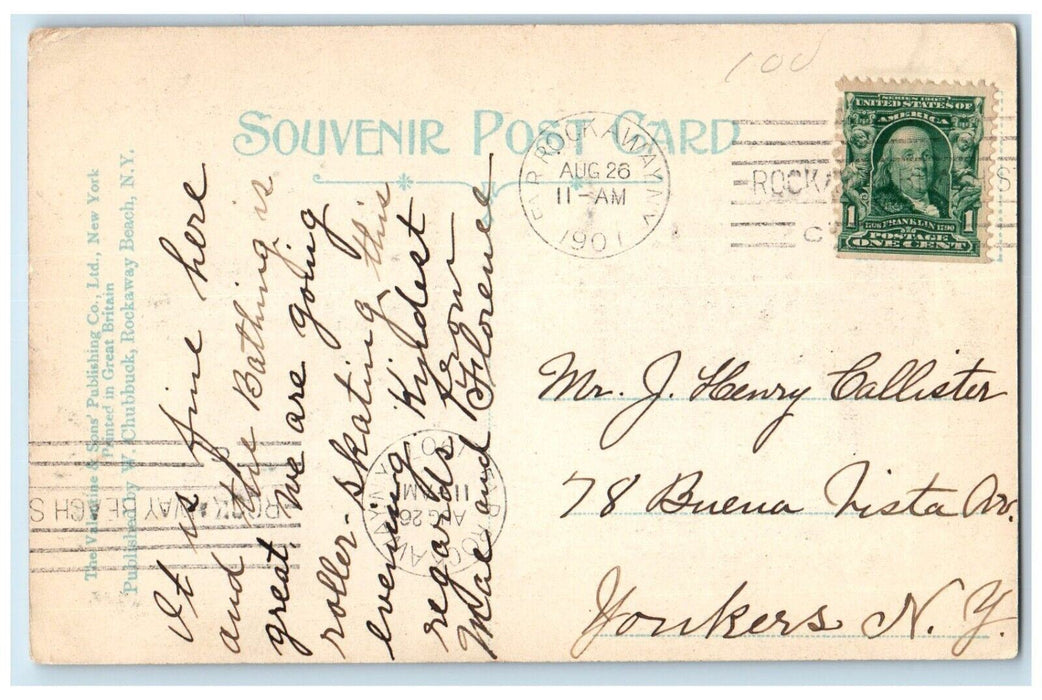 100
SOUVENIR POST CARD
FAR ROCKAWAY N.Y.
AUG 26
11-AM
1901
SERIES 1902
UNITED STATES OF
AMERICA
1 FRANKLIN 1
1706 1790
POSTAGE
ONE CENT
The Valentine & Sons' Publishing Co., Ltd., New York
Printed in Great Britain
Published by W. Chubbuck, Rockaway Beach, N.Y.
It is fine here
and the Bathing is
great. We are going
roller-skating this
evening. Kindest
regards from
Mae and Florence
Mr. J. Henry Callister
78 Buena Vista Av.
Yonkers N.Y.
ROCKAWAY BEACH S
AUG 26
11 AM